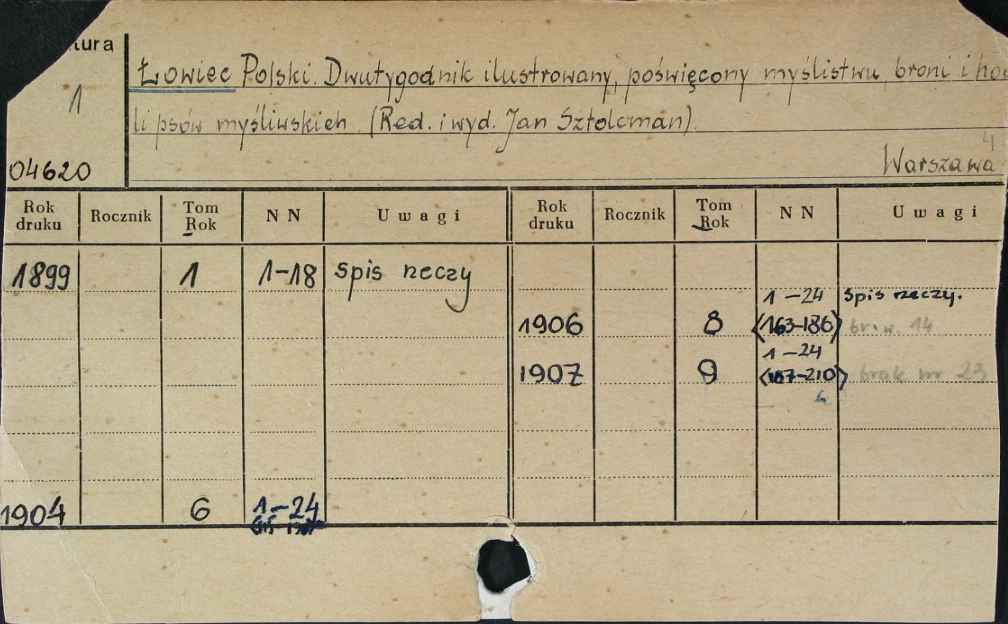 tura
Łowiec Polski. Dwutygodnik ilustrowany, poświęcony myślistwu, broni i ho
1
li psów myśliwskich. (Red. i wyd. Jan Sztolcman).
4
04620
Warszawa
Rok druku Rocznik Tom Rok NN Uwagi Rok druku Rocznik Tom Rok NN Uwagi
1899 1 1-18 spis rzeczy
1-24 Spis rzeczy.
1906 8 (163-186) 14
1-24
1907 9 (187-210) brak nr 23
1904 6 1-24